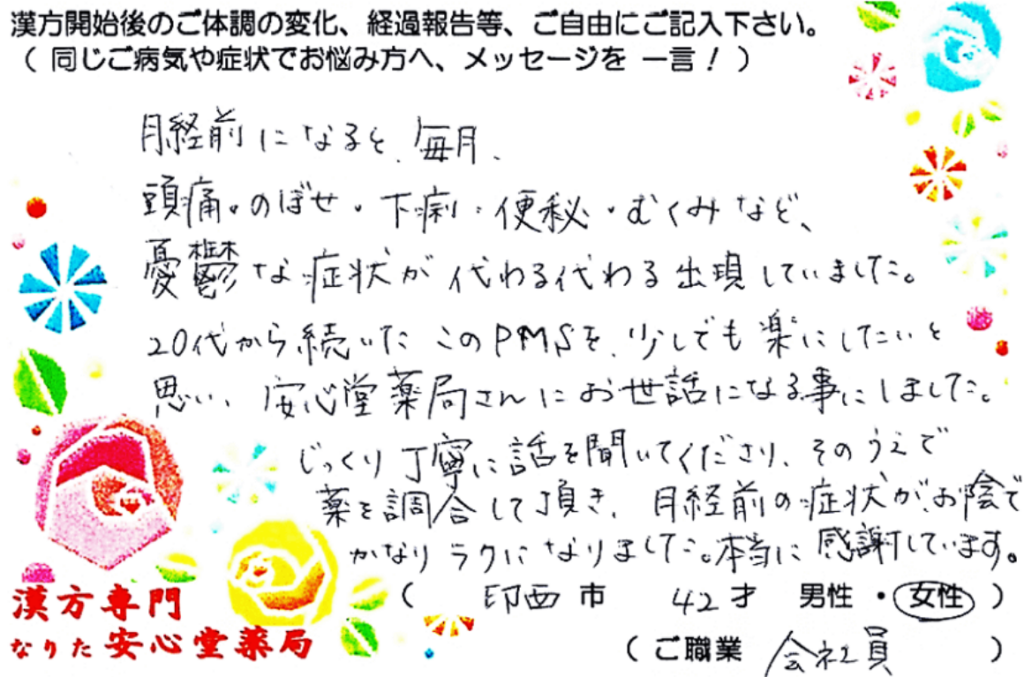 漢方開始後のご体調の変化、経過報告等、ご自由にご記入下さい。
（ 同じご病気や症状でお悩み方へ、メッセージを 一言！ ）
月経前になると、毎月、
頭痛・のぼせ・下痢・便秘・むくみなど、
憂鬱な症状が代わる代わる出現していました。
20代から続いたこのPMSを、少しでも楽にしたいと
思い、安心堂薬局さんにお世話になる事にしました。
じっくり丁寧に話を聞いてくださり、そのうえで
薬を調合して頂き、月経前の症状が、お陰で
かなりラクになりました。本当に感謝しています。
（ 印西市 42才 男性・女性 ）
漢方専門
なりた安心堂薬局
（ご職業 会社員 ）